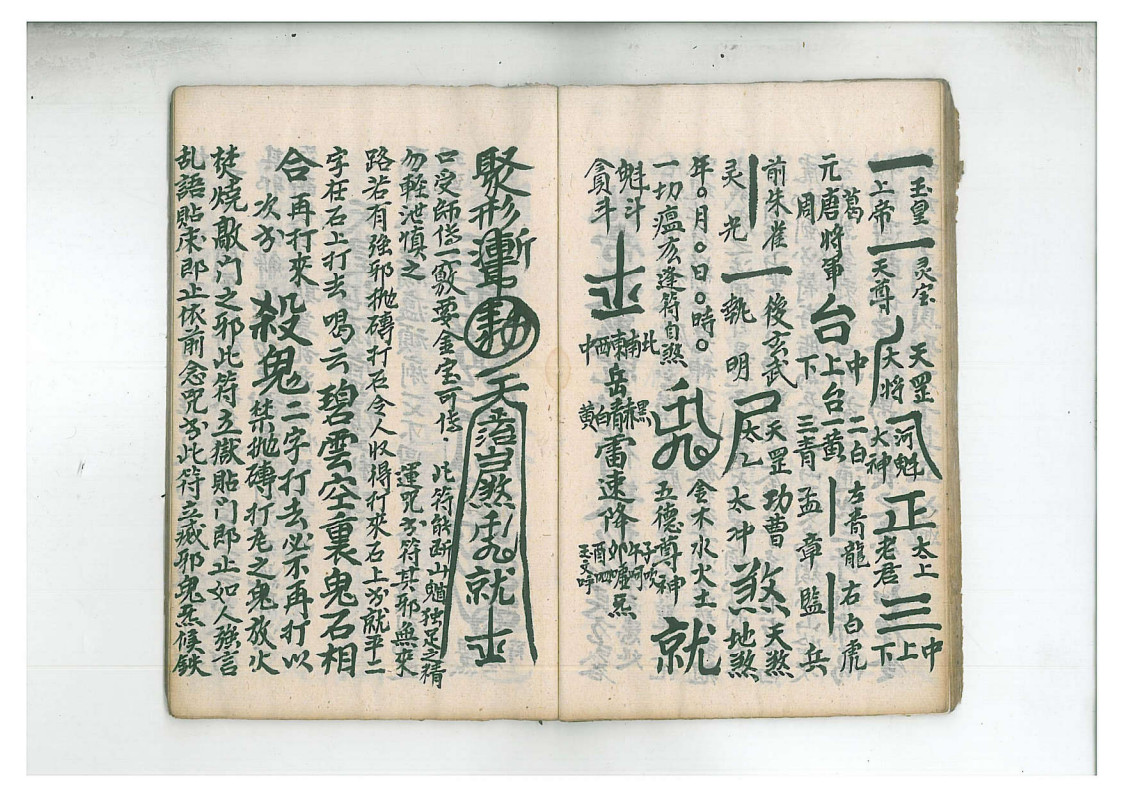 一 玉皇上帝 一 灵宝天尊 丿 天罡大将 河魁大神 正 太上老君 三 中上下
元 葛唐周将軍 台 中上下台 一黄二白三青 丨 左青龍孟章 丨 右白虎監兵
前朱雀 丨 灵光 一 後玄武執明 尸 天罡太乙 功曹太冲 煞 天煞地煞
年〇月〇日〇時〇
一切瘟疫逢符自煞 金木水火土 五德尊神 就
魁斗 貪斗 北南東西中 岳 黑赤青白黄 雷速降 炁
聚形 天 煞 就
口受師傳一敷要金宝可傳 此符能断山魈独足之精
勿輕泄慎之 運咒書符其邪無來
路若有強邪拋磚打石令人收得打來石上書就平二
字在石上打去喝云碧雲空裏鬼石相
合再打來 次書 殺鬼二字打去必不再打以
禁拋磚打瓦之鬼放火
焚燒敲門之邪此符立獄貼門即止如人強言
乱語貼床即止依前念咒書此符立滅邪鬼炁候鉄